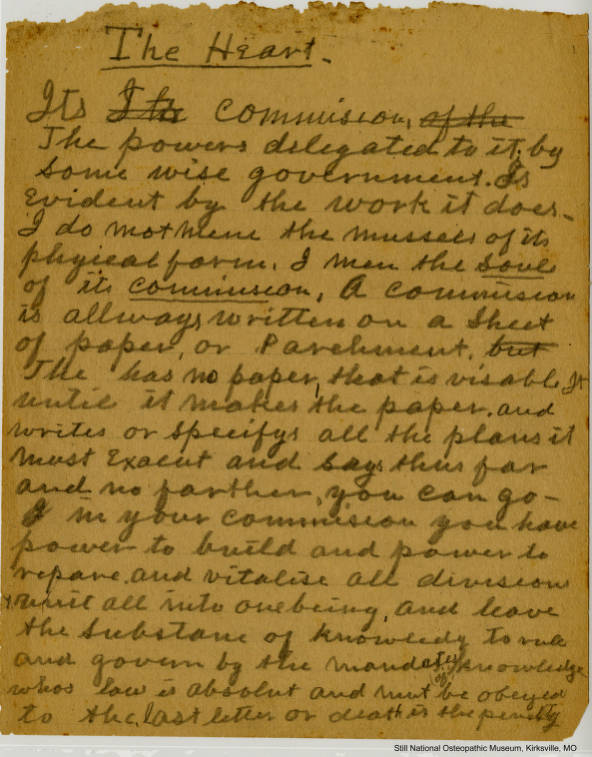 The Heart.
Its The commision, of the
The powers delegated to it, by
some wise government. Is
Evident by the work it does-
I do not mene the mussels of its
physical form. I men the soul
of its commision, A commision
is allways written on a sheet
of paper, or Parchment, but
The has no paper, that is visable It
until it makes the paper. and
writes or specifys all the plans it
must Exacut and says thus far
and no farther, you can go-
I in your commision you have
power to build and power to
repare, and vitalise all divisions
unit all into one being, and leave
the substanc of knowledg to rule
and govern by the mandates of knowledge
whos law is absolut and must be obeyed
to the last letter or death is the penelty
Still National Osteopathic Museum, Kirksville, MO